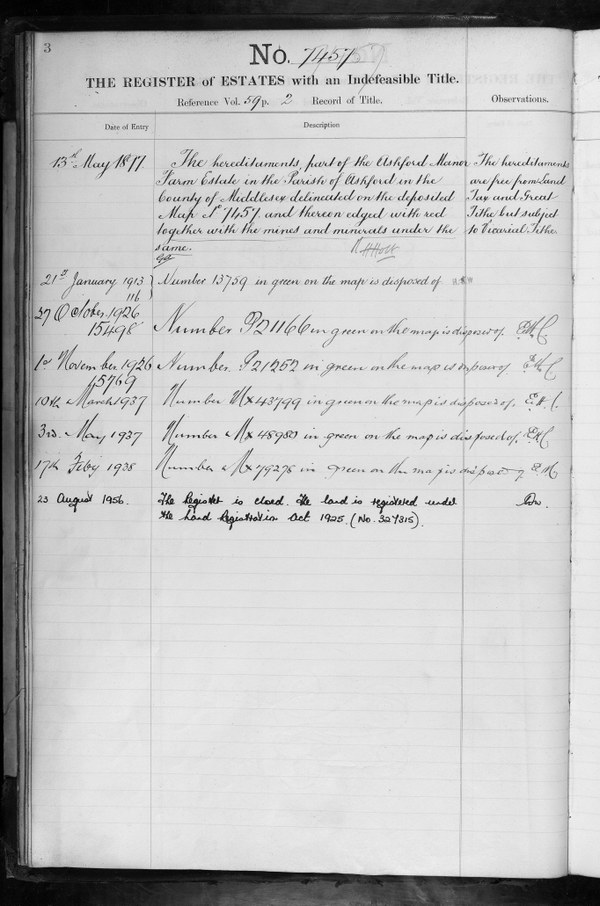 3
No. 7457
THE REGISTER of ESTATES with an Indefeasible Title.
Reference Vol. 59 p. 2 Record of Title.
Observations.
Date of Entry
Description
13th May 1877.
The hereditaments, part of the Ashford Manor
Farm Estate in the Parish of Ashford in the
County of Middlesex delineated on the deposited
Map No 7457 and thereon edged with red
together with the mines and minerals under the
same.
The hereditaments
are free from Land
Tax and Great
Tithe but subject
to Vicarial Tithe.
21st January 1913
116
Number 13759 in green on the map is disposed of
27 October 1926
15498
Number P21166 in green on the map is disposed of. E.H.C
1st November 1926
15769
Number P21252 in green on the map is disposed of E.H.C
10th March 1937
Number Mx43799 in green on the map is disposed of. E.H.C.
3rd. May 1937
Number Mx48980 in green on the map is disposed of. E.H.C
17th Feby 1938
Number Mx79278 in green on the map is disposed of E.H.C
23 August 1956.
The Register is closed. The land is registered under
the Land Registration Act 1925. (No. 327315).